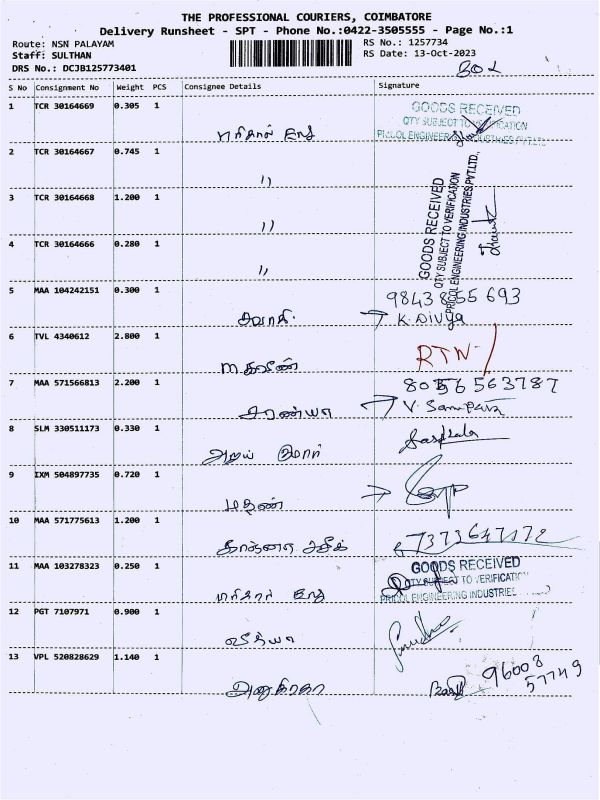 THE PROFESSIONAL COURIERS, COIMBATORE
Delivery Runsheet - SPT - Phone No.:0422-3505555 - Page No.:1
Route: NSN PALAYAM
RS No.: 1257734
Staff: SULTHAN
RS Date: 13-Oct-2023
DRS No.: DCJB125773401
S No Consignment No Weight PCS Consignee Details Signature
1 TCR 30164669 0.305 1
GOODS RECEIVED
QTY SUBJECT TO VERIFICATION
PRICOL ENGINEERING INDUSTRIES PVT.LTD.,
2 TCR 30164667 0.745 1
"
3 TCR 30164668 1.200 1
"
GOODS RECEIVED
QTY SUBJECT TO VERIFICATION
PRICOL ENGINEERING INDUSTRIES PVT.LTD.,
4 TCR 30164666 0.280 1
"
5 MAA 104242151 0.300 1 98438 55 693
K. Divya
6 TVL 4340612 2.800 1
RTN
7 MAA 571566813 2.200 1 8056563787
சரண்யா V.
8 SLM 330511173 0.330 1
9 IXM 504897735 0.720 1
மதன்
10 MAA 571775613 1.200 1
7373647172
11 MAA 103278323 0.250 1
GOODS RECEIVED
QTY SUBJECT TO VERIFICATION
PRICOL ENGINEERING INDUSTRIES
12 PGT 7107971 0.900 1
வித்யா
13 VPL 520828629 1.140 1
96008
57749